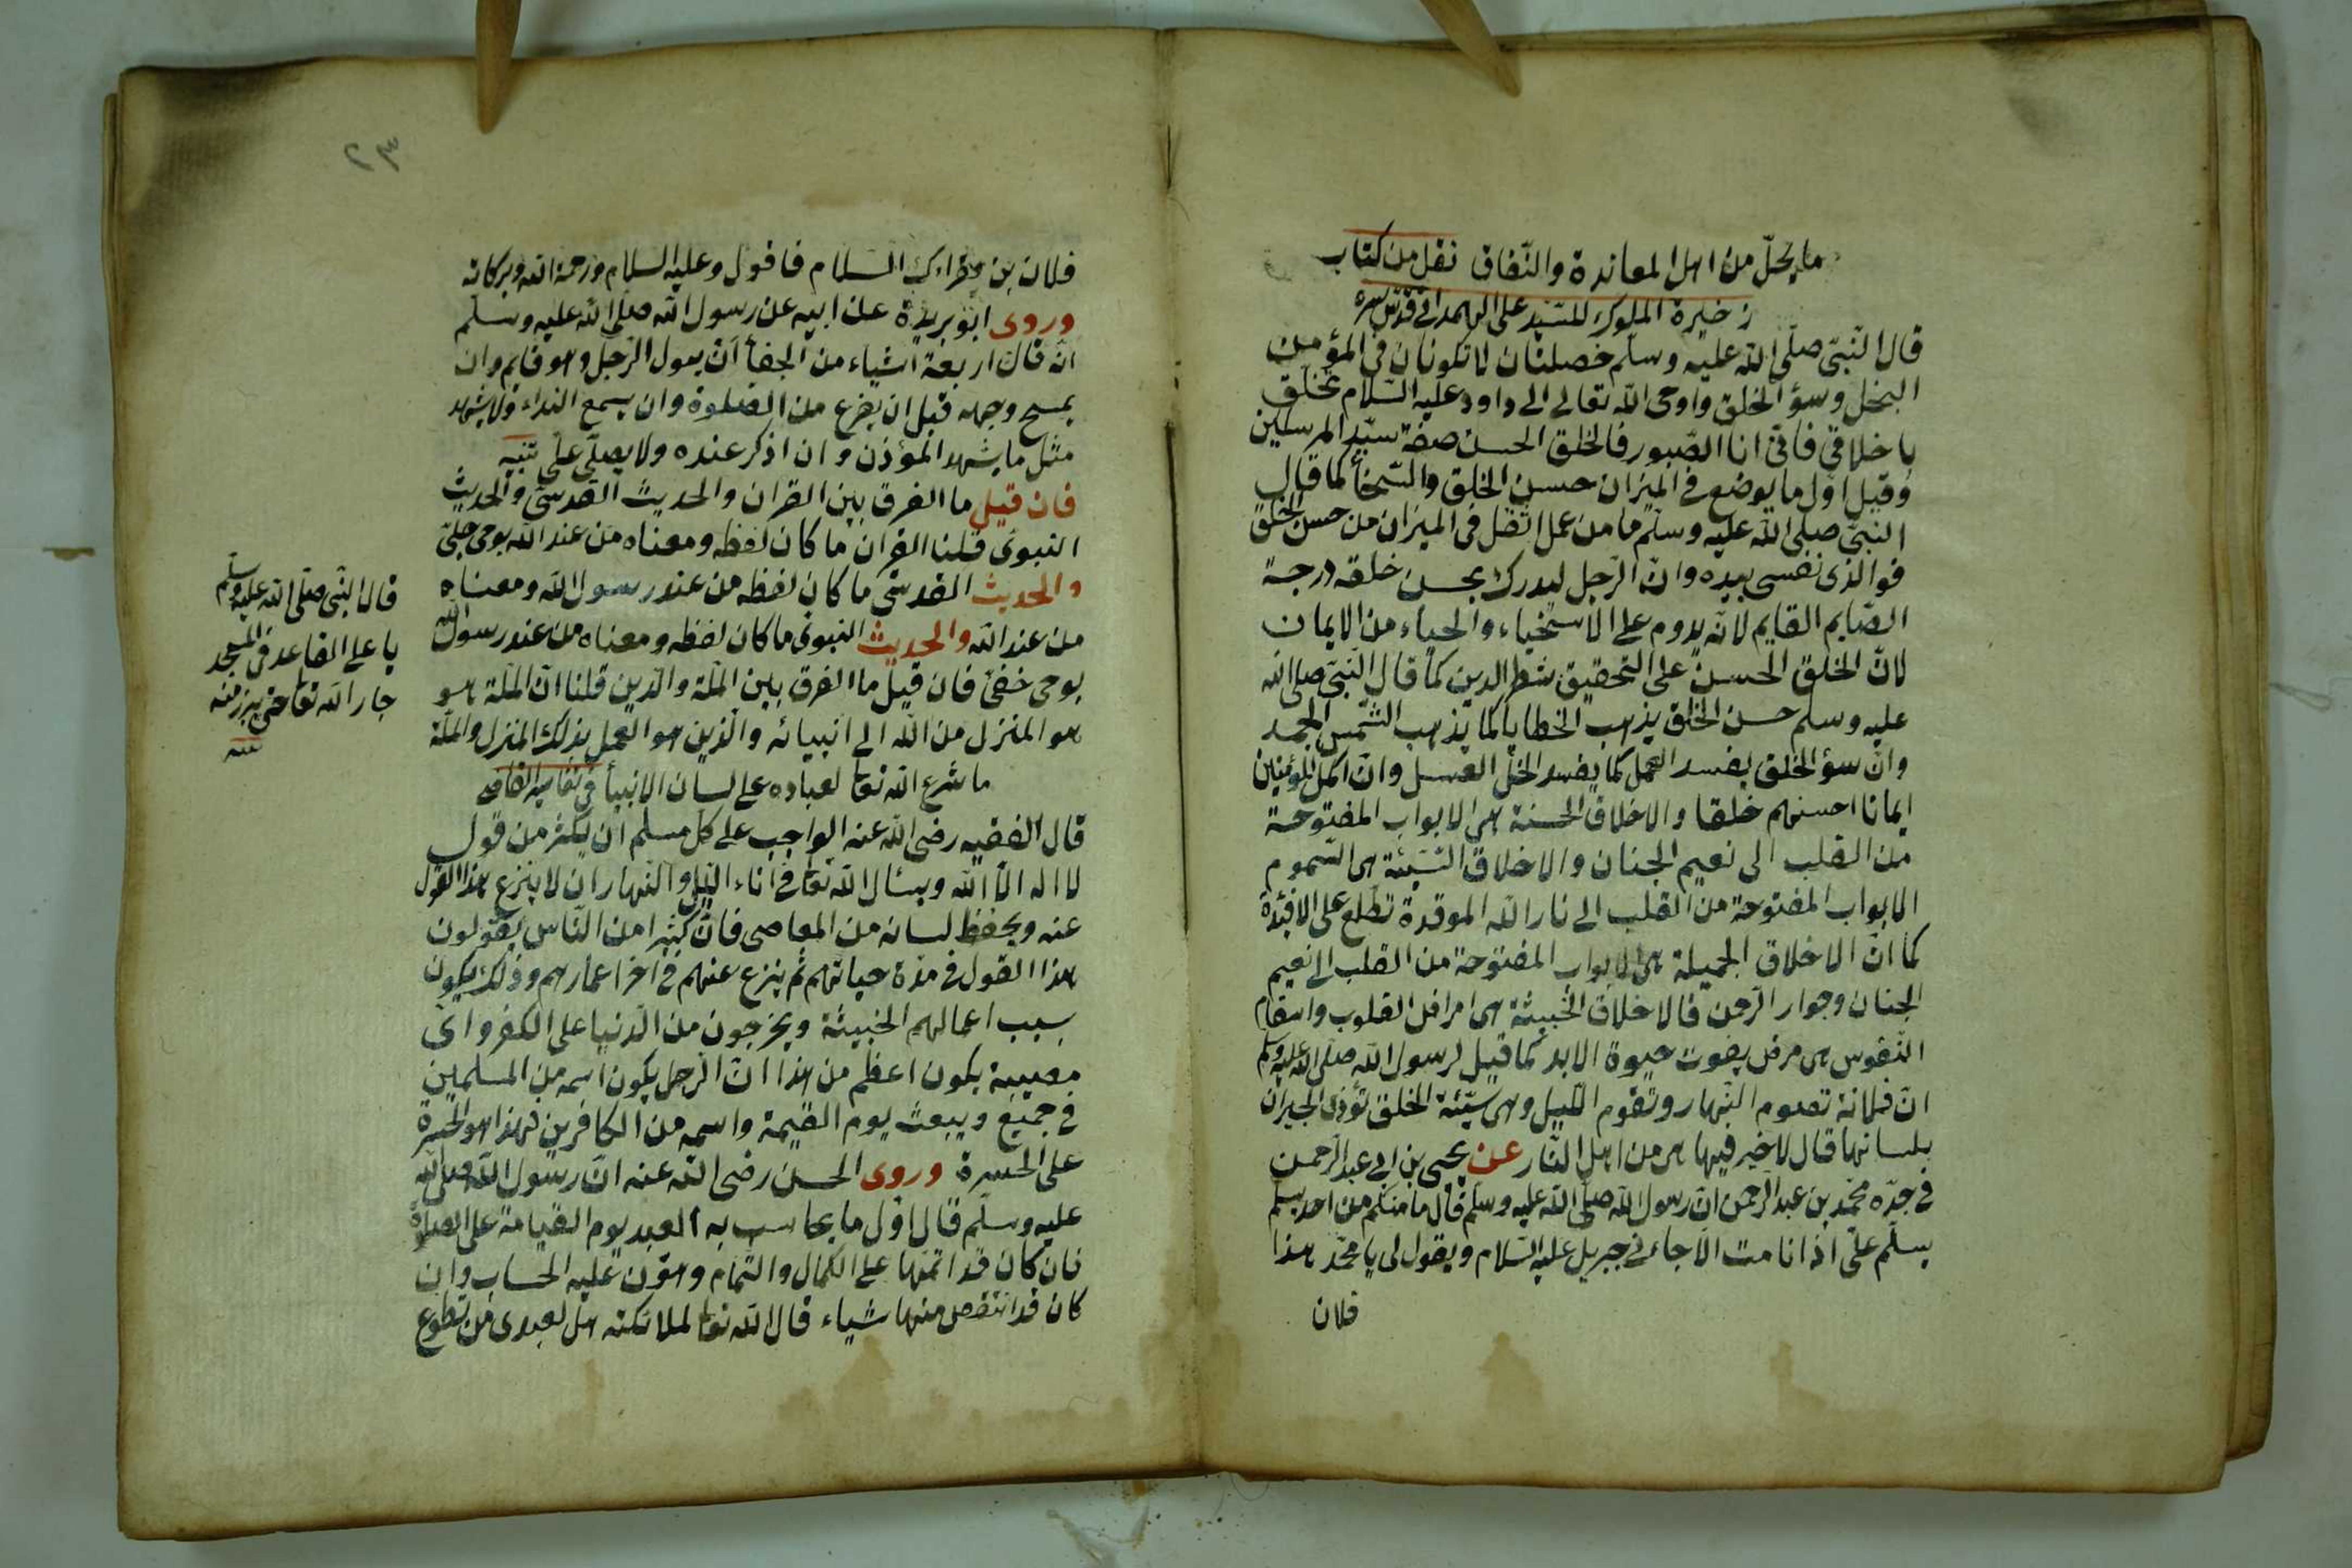 ما يحلّ من اهل المعاندة والنّفاق نقل من كتاب
زخيرة الملوك للسّيد على الهمدانى قدّس سره
قال النّبىّ صلّى الله عليه وسلّم خصلتان لا تكونان فى المؤمن
البخل وسؤ الخلق واوحى الله تعالى الى داود عليه السّلام تخلّق
باخلاقى فانّى انا الصّبور فالخلق الحسن صفة سيّد المرسلين
وقيل اوّل ما يوضع فى الميزان حسن الخلق والسّخأ كما قال
النبىّ صلى الله عليه وسلّم ما من عمل اثقل فى الميزان من حسن الخلق
فوالذى نفسى بيده وانّ الرّجل ليدرك بحسن خلقه درجة
الصّايم القايم لانّه يدوم على الاستحياء والحياء من الايمان
لانّ الخلق الحسن على التحقيق شطر الدين كما قال النّبىّ صلى الله
عليه وسلم حسن الخلق يذهب الخطايا كما يذهب الشّمس الجمد
وانّ سؤ الخلق يفسد العمل كما يفسد الخلّ العسل وانّ اكمل المؤمنين
ايمانا احسنهم خلقا والاخلاق الحسنة هى الابواب المفتوحة
من القلب الى نعيم الجنان والاخلاق السّيّئة هى السّموم
الابواب المفتوحة من القلب الى نار الله الموقدة تطّلع على الافئدة
كما انّ الاخلاق الجميلة هى الابواب المفتوحة من القلب الى نعيم
الجنان وجوار الرّحمن فالاخلاق الخبيثة هى امراض القلوب واسقام
النّفوس هى مرض يفوت حيوة الابد كما قيل لرسول الله صلّى الله عليه وسلم
انّ فلانة تصوم النّهار وتقوم اللّيل وهى سيّئة الخلق تؤذى الجيران
بلسانها قال لا خير فيها هى من اهل النّار عن يحيى بن ابى عبد الرّحمن
فى جدّه محمّد بن عبد الرّحمن انّ رسول الله صلّى الله عليه وسلّم قال ما منكم من احد يسلّم
يسلّم علىّ اذ انا مت الّا جاءنى جبريل عليه السّلام ويقول لى يا محمّد هذا
فلان
٢٣
فلان بن يقراءك السّلام فاقول وعليه السّلام ورحمة الله وبركاته
وروى ابو بريدة عن ابيه عن رسول الله صلّى الله عليه وسلّم
انّه قال اربعة اشياء من الجفأ ان يبول الرّجل وهو قايم وان
يمسح وجهه قبل ان يفرغ من الصّلوة وان يسمع النداء ولا يشهد
مثل ما يشهد المؤذن وان اذكر عنده ولا يصلّى علىّ تنبيه
فان قيل ما الفرق بين القران والحديث القدسىّ والحديث
النبوىّ قلنا القران ما كان لفظه ومعناه من عند الله بوحى جلىّ
والحديث القدسىّ ما كان لفظه من عند رسول الله ومعناه
من عند الله والحديث النبوىّ ما كان لفظه ومعناه من عند رسول الله
بوحى خفىّ فان قيل ما الفرق بين الملّة والدّين قلنا انّ الملّة هو
هو المنزل من الله الى انبيائه والدّين هو العمل بذلك المنزل والملّة
ما شرع الله تعا لعباده على لسان الانبيأ
قال الفقيه رضى الله عنه الواجب على كلّ مسلم ان يكثر من قول
لا اله الّا الله ويسئال الله تعا فى اناء اللّيل والنّهار ان لا ينزع هذا القول
عنه ويحفظ لسانه من المعاصى فانّ كثيرا من النّاس يقولون
هذا القول فى مدّة حياتهم ثم ينزع عنهم فى اخر اعمارهم وذلك يكون
بسبب اعمالهم الخبيثة ويخرجون من الدّنيا على الكفر واى
مصيبة يكون اعظم من هذا انّ الرّجل يكون اسمه من المسلمين
فى جميع ويبعث يوم القيمة واسمه من الكافرين فهذا هو الحسرة
على الحسرة وروى الحسن رضى الله عنه انّ رسول الله صلى الله
عليه وسلّم قال اوّل ما يحاسب به العبد يوم القيامة على الصلوة
فان كان قد اتمّها على الكمال والتّمام وهوّن عليه الحساب وان
كان قد انتقص منها شياء قال الله تعا لملائكته هل لعبدى من تطوع
قال النّبى صلّى الله عليه وسلّم
يا على القاعد فى المسجد
جار الله تعا حتى